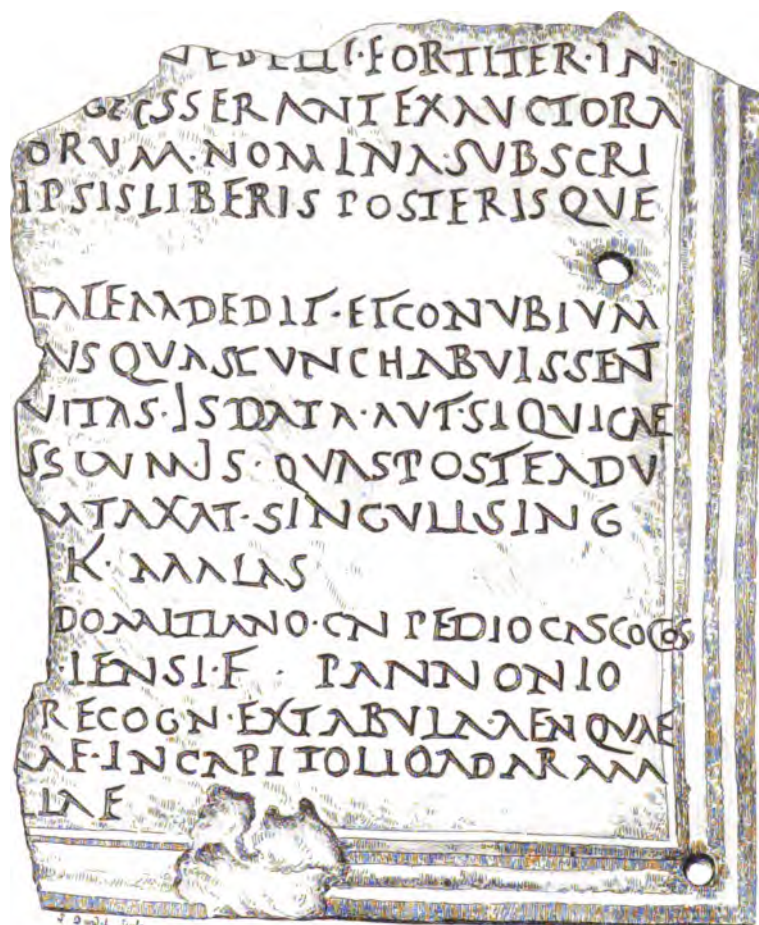 FORTITER·IN·
GESSERANT EXAVCTORA
ORVM·NOMINA·SUBSCRI
IPSIS LIBERIS POSTERISQVE
DEDIT·ET CONVBIVM
VS QVASCVNC HABVISSENT
VITAS·IS DATA·AVT·SIQVI CAE
CVM IS·QVAS POSTEA DV
MTAXAT·SINGVLI SING
K·MAIAS
DOMITIANO·CN PEDIO CASCO COS
IENSI·F· PANNONIO
RECOGN·EX TABVLA AEN QVAE
IN CAPITOLIO AD ARAM
LIAE